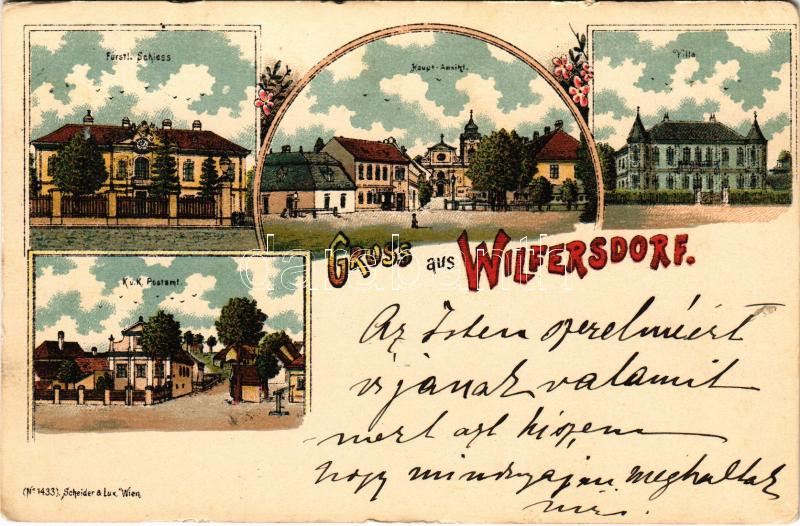 Fürstl. Schloss
Haupt-Ansicht.
Villa
GRUSS aus WILFERSDORF.
K.u.K. Postamt.
Az Isten szerelméért
irjanak valamit
mert azt hiszem
hogy mindnyájan meghaltak
már.
(No 1433). Scheider & Lux, Wien.
darabanth